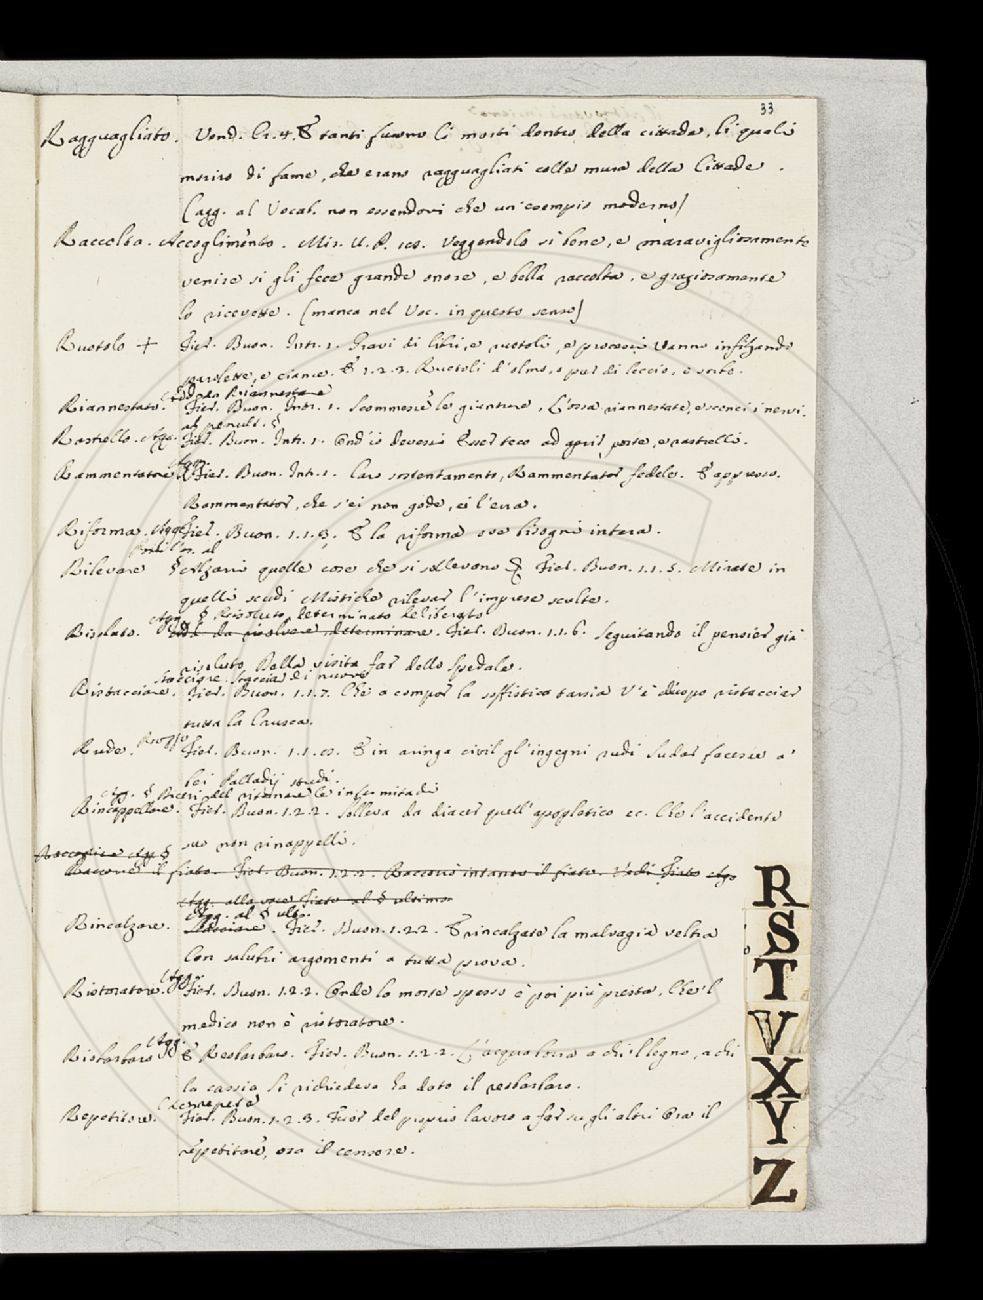 33
Ragguagliato. Vend. Cr. 4. E tanti furno li morti dentro della cittade, li quali
moriro di fame, che erano ragguagliati colle mura della Cittade.
(agg. al Vocab. non essendovi che un'esempio moderno)
Raccolta. Accoglimento. Mir. Veggendolo si bene, e maravigliosamente
venire si gli fece grande onore, e bella raccolta, e graziosamente
lo ricevette. (manca nel Voc. in questo senso)
Ruotolo + Fier. Buon. Intr. 1. Gravi di libri, e ruotoli, e processi vanno infilzando
parolette, e ciance. E 1.2.2. Ruotoli d'olmo, o pur di leccio, e sorbo.
da Riannestare
Riannestato. Fier. Buon. Intr. 1. Scommesse le giunture, L'ossa riannestate, e sconci i nervi.
al penult. §
Rastrello. Agg. Fier. Buon. Intr. 1. Ond'io dovessi Esser teco ad aprir porte, e rastrelli.
Rammentatore Fier. Buon. Int. 1. Caro sostentamento, Rammentator fedele. E appresso.
Rammentator, che s'ei non gode, ei l'era.
Riforma. Agg. Fier. Buon. 1.1.3. E la riforma ove bisogni intera.
al
Rilevare § Alzarsi quelle cose che si sollevono Fier. Buon. 1.1.5. Mirate in
quelli scudi Mistiche rilevar l'imprese scolte.
Agg. § Risoluto, determinato deliberato
Risoluto. da risolvere determinare. Fier. Buon. 1.1.6. Seguitando il pensier già
risoluto Della visita far dello spedale.
Stacciare di nuovo
Ristacciare. Fier. Buon. 1.1.7. Che a compor la soffistica tarsia V'è d'uopo ristacciar
tutta la Crusca.
Rude. Rozzo Fier. Buon. E in aringa civil gl'ingegni rudi Sudar facessi a'
bei Palladij studi.
Agg. § del ritornare le infermitadi
Rincappellare. Fier. Buon. 1.2.2. Solleva da diacer quell'apopletico ec. Che l'accidente
suo non rincappelli.
Raccorre il fiato. Fier. Buon. 1.2.2. Raccorsi intanto il fiato. Vedi Fiato
Agg. alla voce Fiato al § ultimo
Agg. al § ult.
Rincalzare. Fier. Buon. 1.2.2. E rincalzate la malvagia veltra
Con salutri argomenti a tutta prova.
Ristoratore. Agg. Fier. Buon. 1.2.2. Onde la morte spesso è poi più presta, Che'l
medico non è ristoratore.
Agg.
Riobarbaro E Reobarbaro. Fier. Buon. 1.2.2. a chi'l legno, a chi
la cassia Si richiedeva ha dato il reobarbaro.
Che repete
Repetitore. Fier. Buon. 1.2.3. Fuor del proprio lavoro a far su gli altri Ora il
repetitore, ora il censore.
R
S
T
V
X
Y
Z